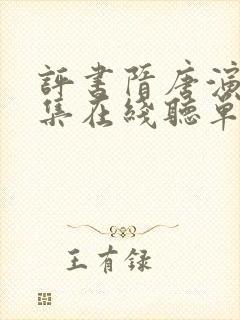 評書隋唐演
集在綫聽單
王有録